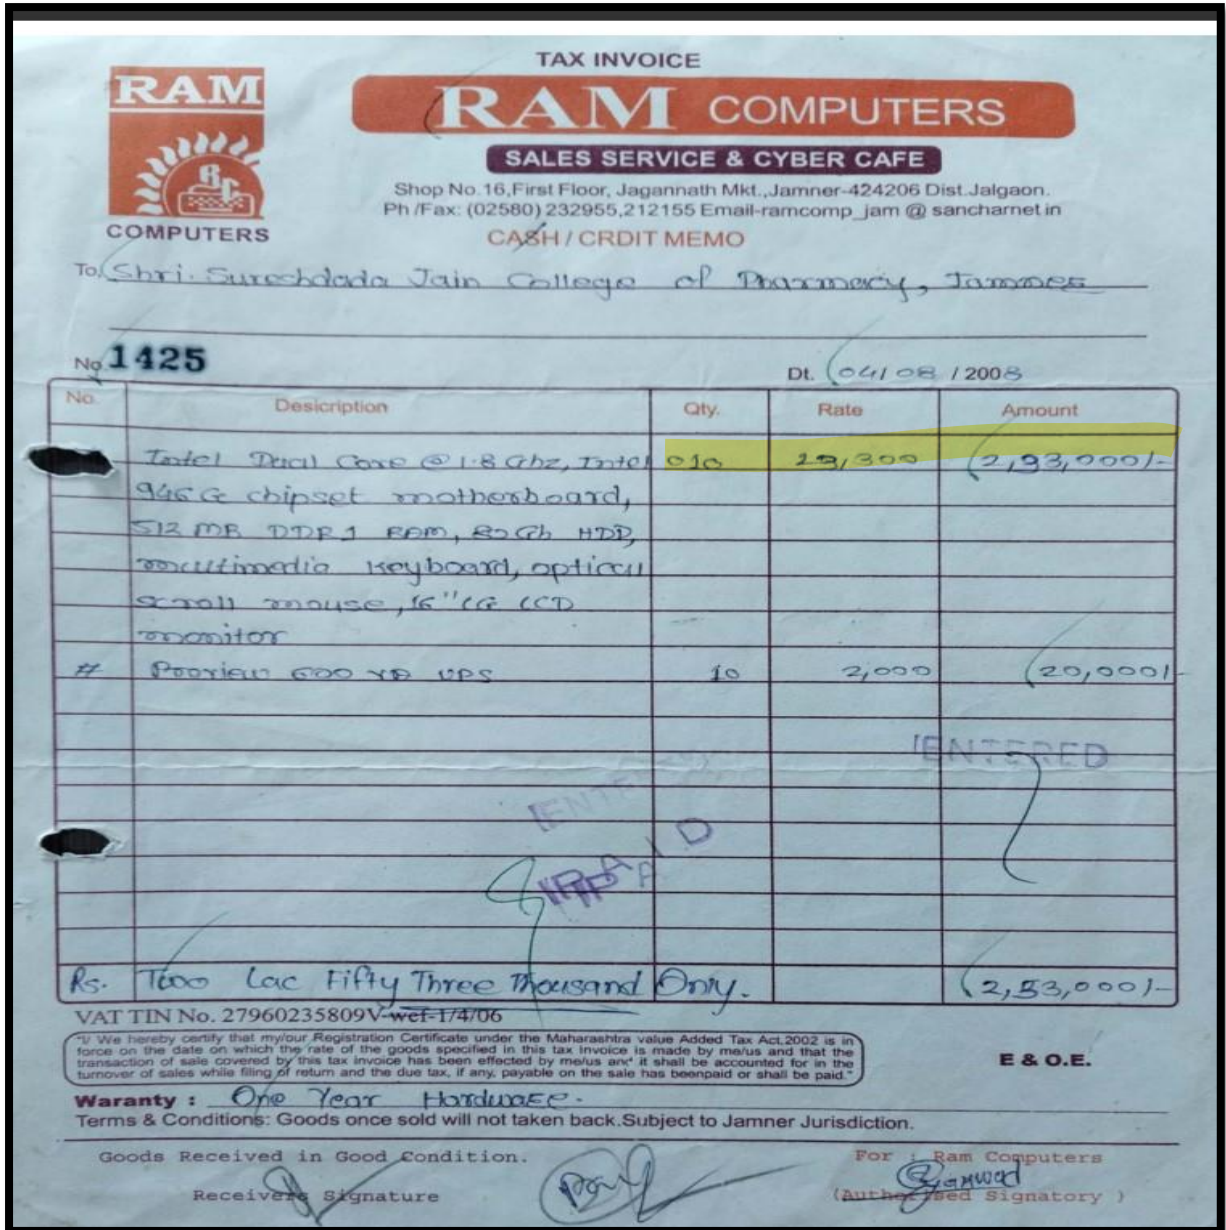 TAX INVOICE
RAM
COMPUTERS
RAM COMPUTERS
SALES SERVICE & CYBER CAFE
Shop No.16,First Floor, Jagannath Mkt.,Jamner-424206 Dist.Jalgaon.
Ph /Fax: (02580) 232955,212155 Email-ramcomp_jam @ sancharnet in
CASH / CRDIT MEMO
To, Shri. Sureshdada Jain College of Pharmacy, Jamner
No 1425
Dt. 04/08 / 2008
No. Desicription Qty. Rate Amount
Intel Dual Core @ 1.8 Ghz, Intel 010 29,300 2,93,000/-
946 G chipset motherboard,
512 MB DDR1 RAM, 80 Gb HDD,
multimedia keyboard, optical
scroll mouse, 16" LG LCD
monitor
# 600 VA UPS 10 2,000 20,000/-
ENTERED
PAID
Rs. Two Lac Fifty Three Thousand Only. 2,53,000/-
VAT TIN No. 27960235809V-wef-1/4/06
"I/ We hereby certify that my/our Registration Certificate under the Maharashtra value Added Tax Act,2002 is in
force on the date on which the rate of the goods specified in this tax invoice is made by me/us and that the
transaction of sale covered by this tax invoice has been effected by me/us and it shall be accounted for in the
turnover of sales while filing of return and the due tax, if any, payable on the sale has beenpaid or shall be paid."
E & O.E.
Waranty : One Year Hardware.
Terms & Conditions: Goods once sold will not taken back.Subject to Jamner Jurisdiction.
Goods Received in Good Condition.
For : Ram Computers
Receivers Signature
(Authorised Signatory )